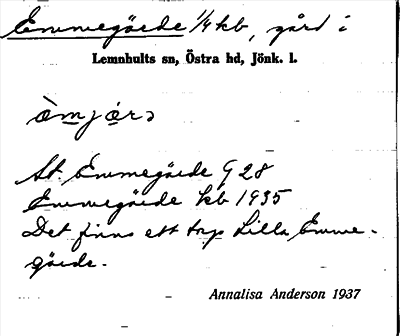 Emmegärde 1/4 kb, gård i
Lemnhults sn, Östra hd, Jönk. l.
St. Emmegärde G 28
Emmegärde kb 1935
Det finns ett torp Lilla Emme-
gärde.
Annalisa Anderson 1937